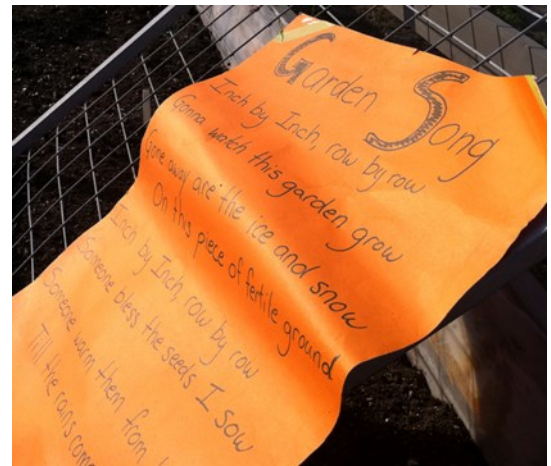 Garden Song
Inch by Inch, row by row
Gonna watch this garden grow
Gone away are the ice and snow
On this piece of fertile ground
Inch by Inch, row by row
Someone bless the seeds I sow
Someone warm them from
Till the rains